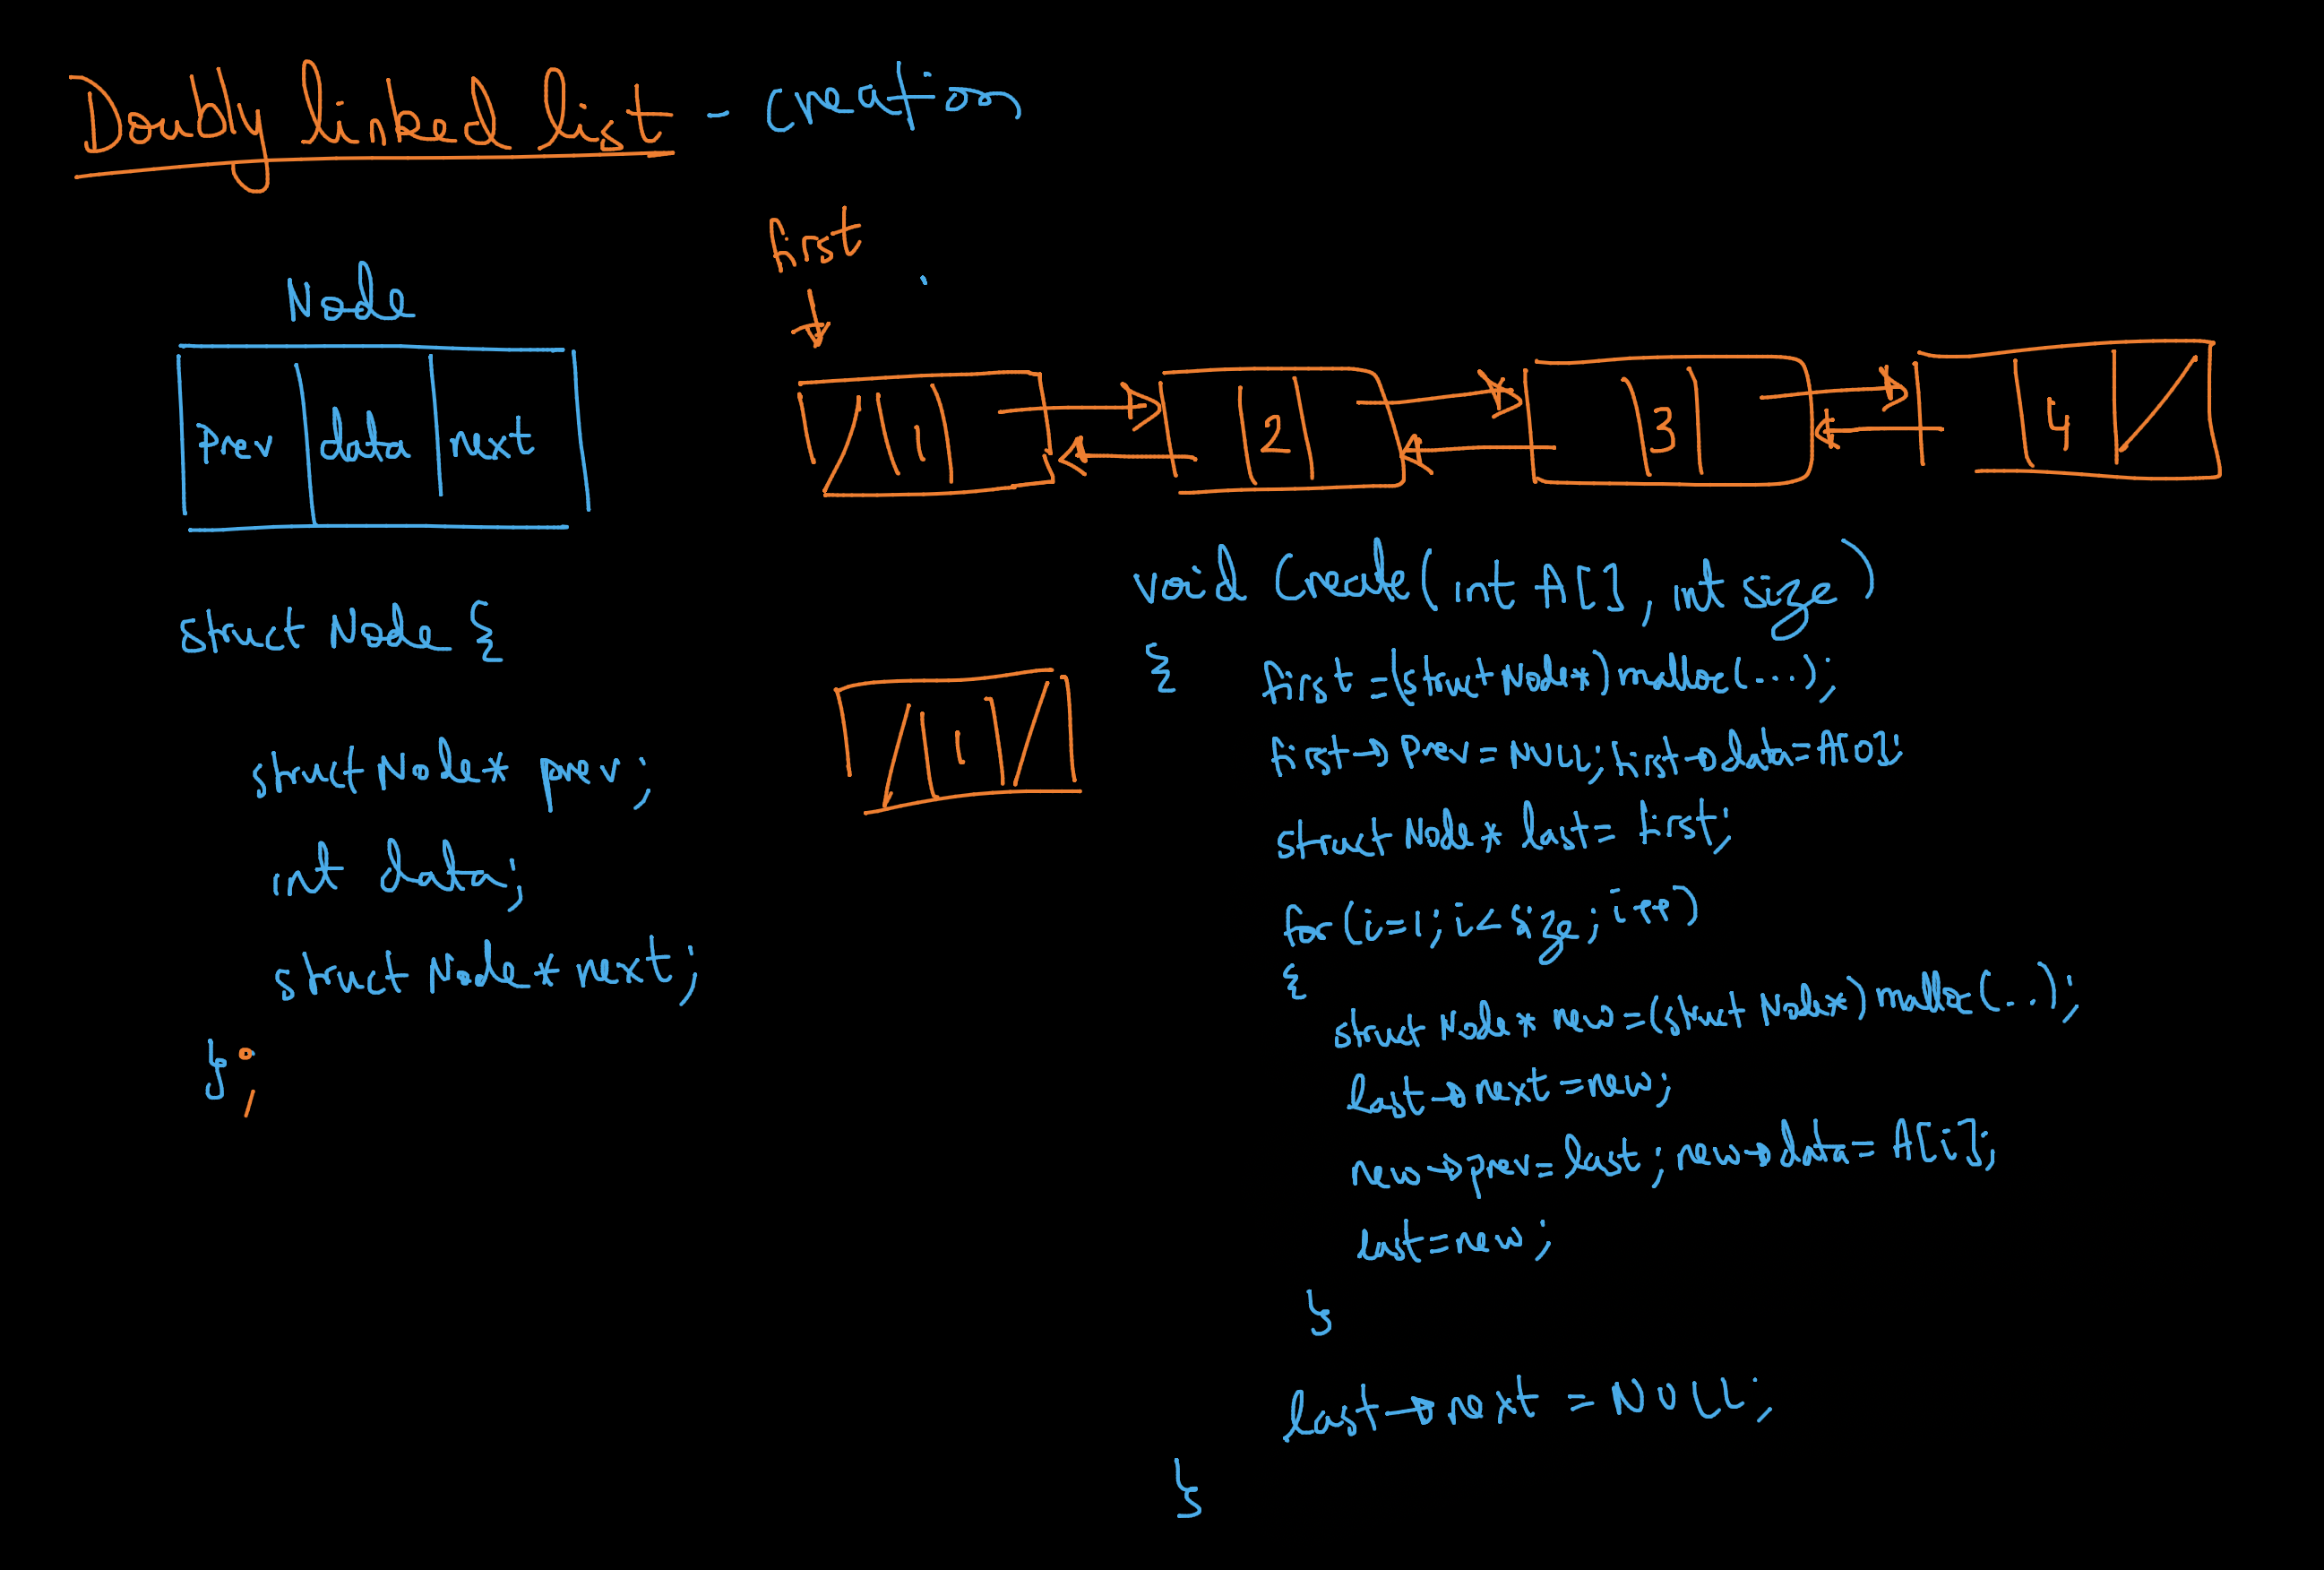 Doubly linked list - creation
first
Node
prev data next
1 2 3 4
struct Node {
struct Node* prev;
int data;
struct Node* next;
};
1
void Create(int A[], int size)
{ first =(struct Node*)malloc(...);
first→prev=NULL; first→data=A[0];
struct Node* last= first;
for(i=1; i<size; i++)
{
struct Node* new=(struct Node*)malloc(..);
last→next=new;
new→prev=last; new→data= A[i];
last=new;
}
last→next = NULL;
}